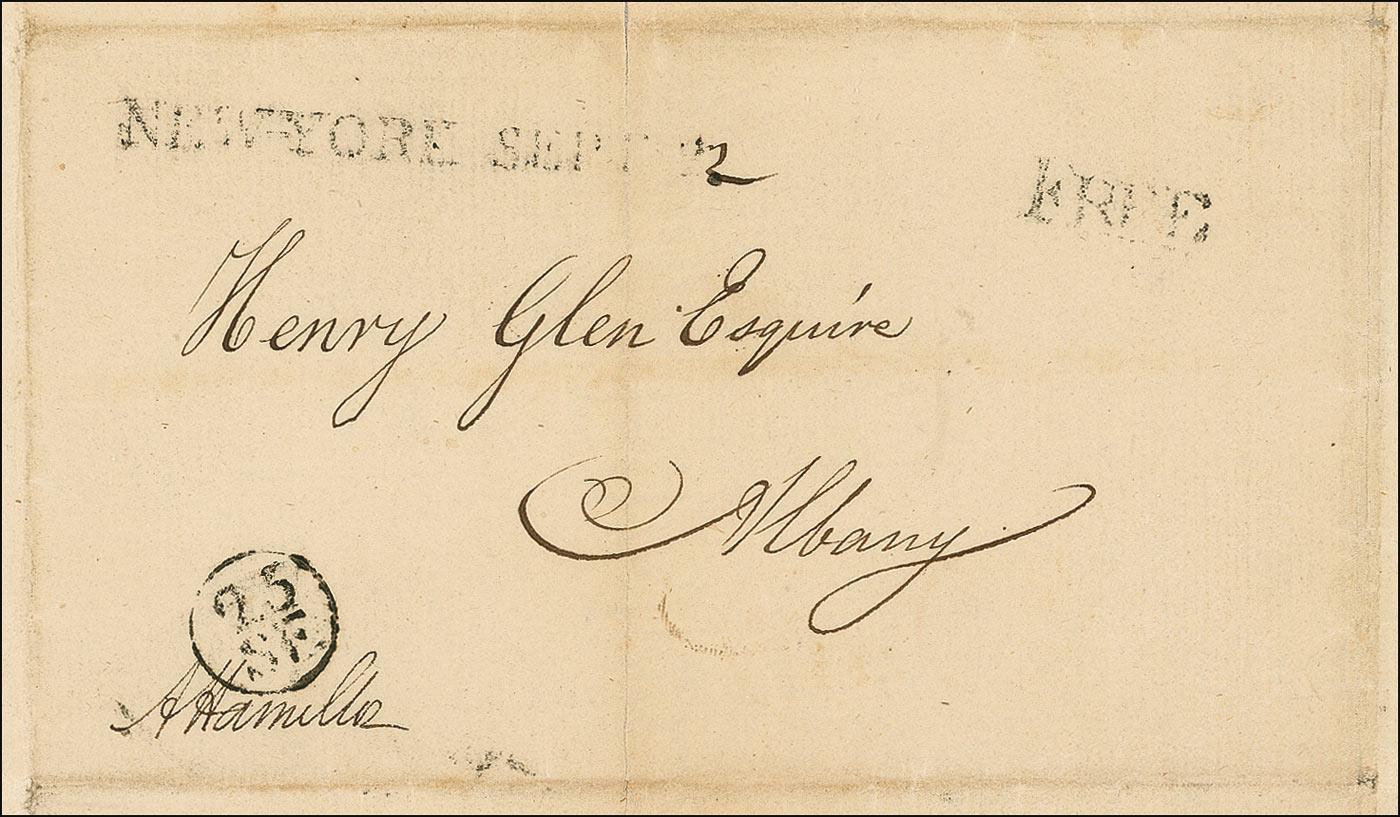 NEW-YORK SEPT 2
FREE.
Henry Glen Esquire
Albany
25
SE
AHamilton